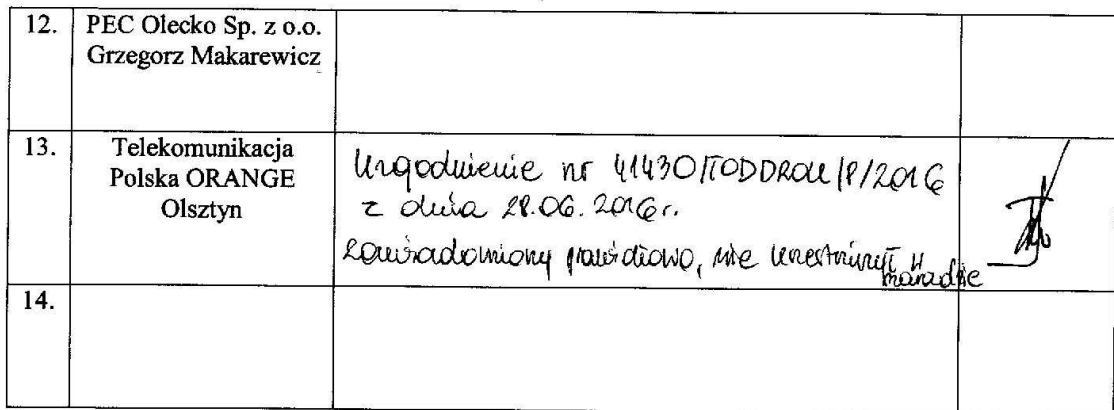 12. PEC Olecko Sp. z o.o.
Grzegorz Makarewicz
13. Telekomunikacja
Polska ORANGE
Olsztyn
Uzgodnienie nr 41430/TODDROU/P/2016
z dnia 28.06.2016r.
zawiadomiony prawidłowo, nie uczestniczył w
naradzie
14.